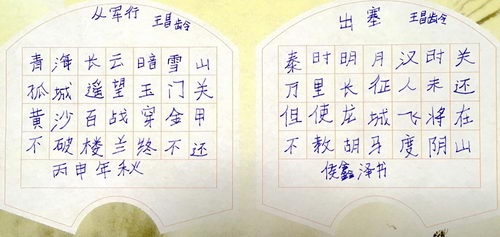 从军行 王昌龄
青海长云暗雪山
孤城遥望玉门关
黄沙百战穿金甲
不破楼兰终不还
丙申年秋
出塞 王昌龄
秦时明月汉时关
万里长征人未还
但使龙城飞将在
不教胡马度阴山
侯鑫泽书